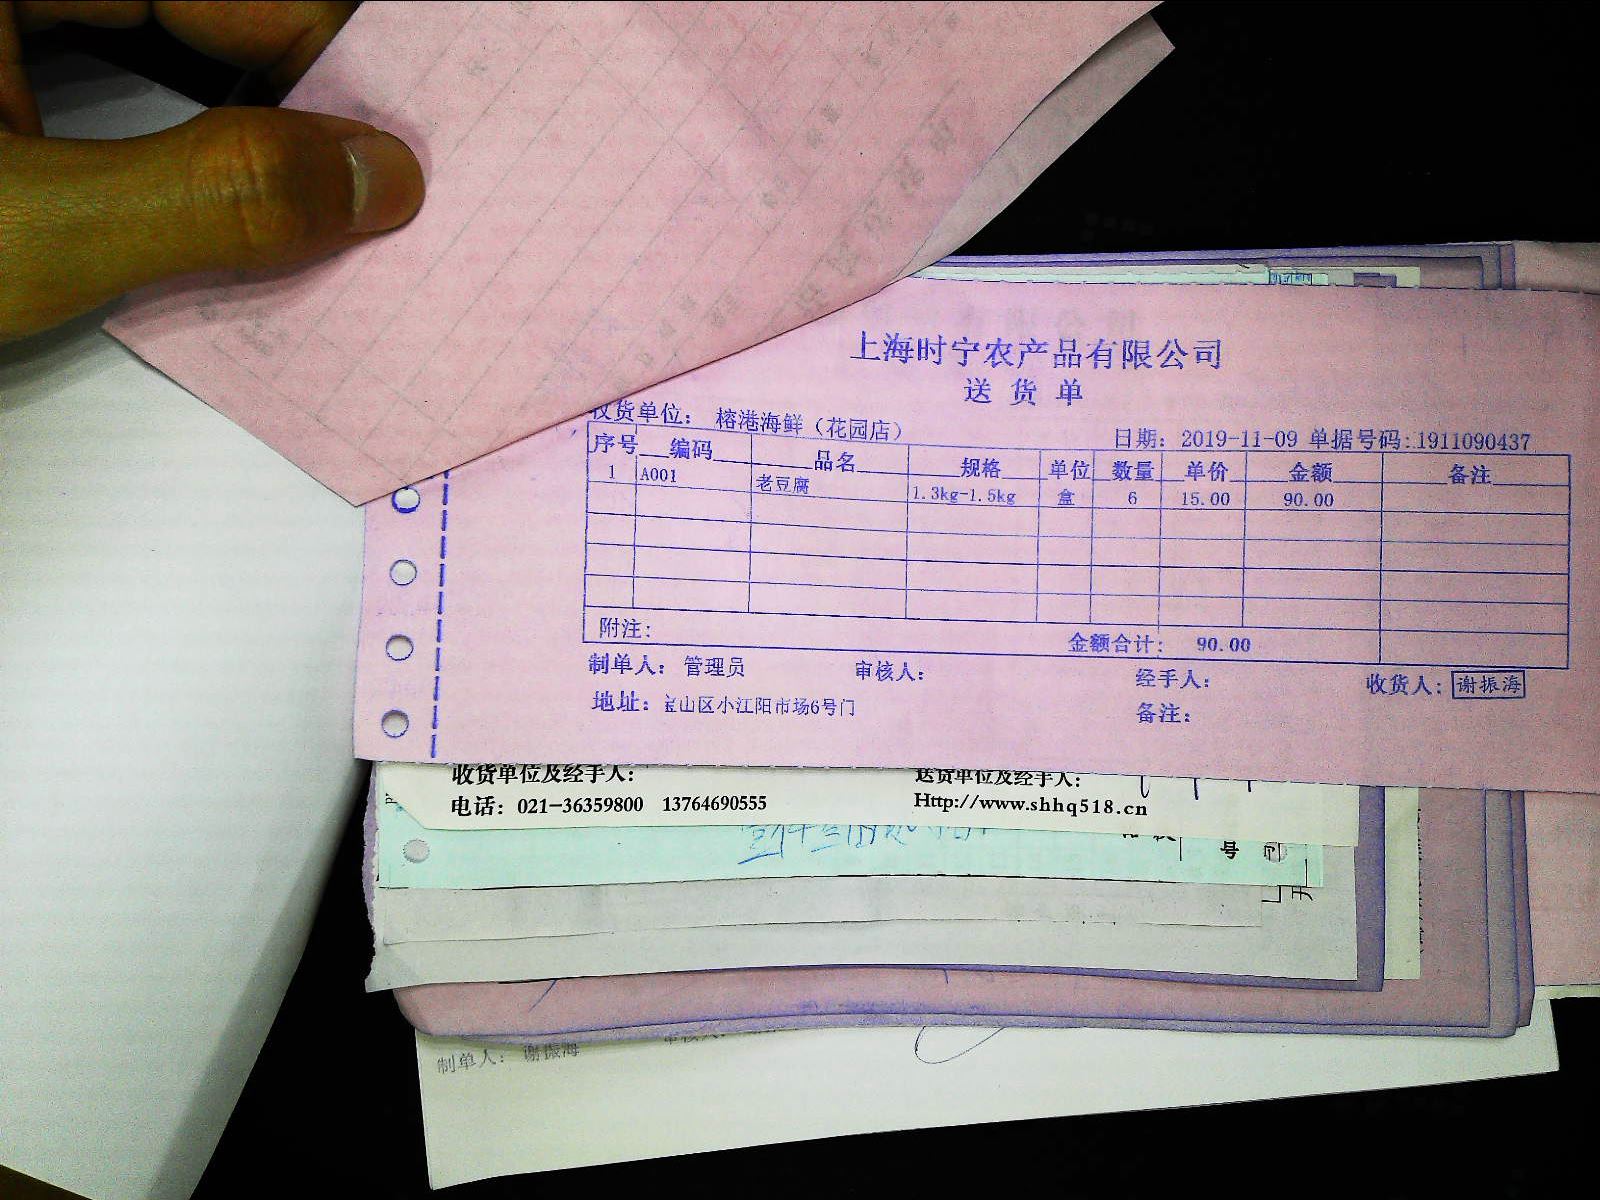 上海时宁农产品有限公司
送货单
收货单位: 榕港海鲜（花园店） 日期: 2019-11-09 单据号码:1911090437
序号 编码 品名 规格 单位 数量 单价 金额 备注
1 A001 老豆腐 1.3kg-1.5kg 盒 6 15.00 90.00
附注: 金额合计: 90.00
制单人: 管理员 审核人: 经手人: 收货人: 谢振海
地址: 宝山区小江阳市场6号门 备注:
收货单位及经手人: 送货单位及经手人:
电话: 021-36359800 13764690555 Http://www.shhq518.cn
号
制单人: 谢振海 审核人: